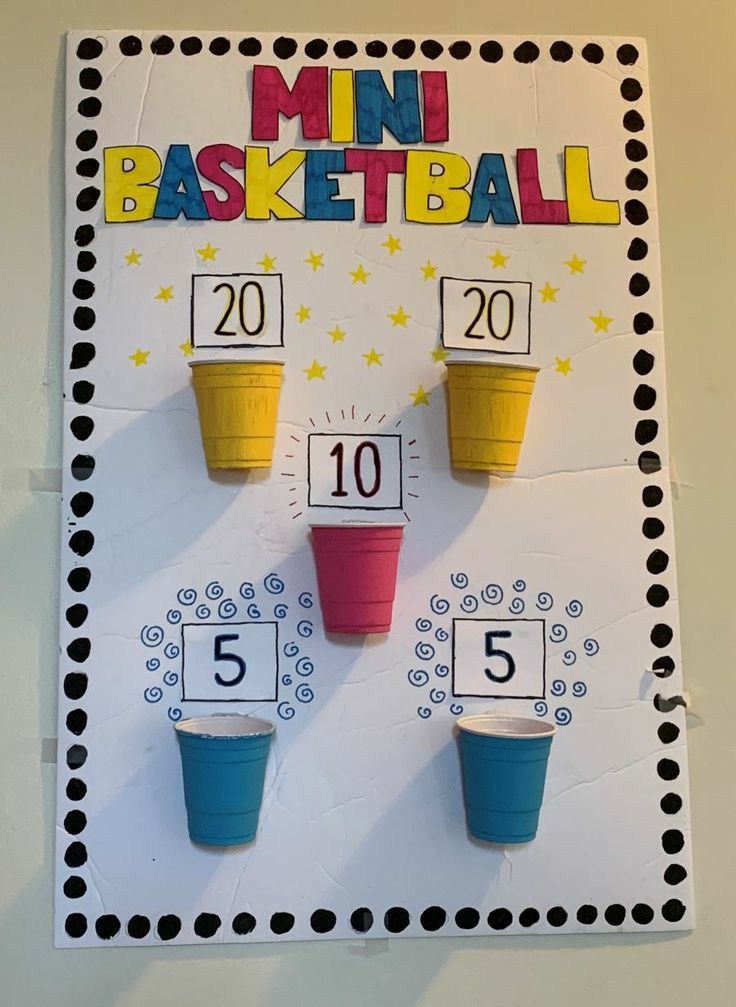 MINI
BASKETBALL
20 20
10
5 5